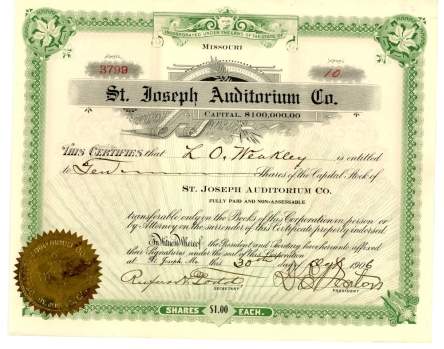 INCORPORATED UNDER THE LAWS OF THE STATE OF
MISSOURI
3799
10
St. Joseph Auditorium Co.
CAPITAL, $100,000.00
THIS CERTIFIES that L O. Weakley is entitled
to Ten Shares of the Capital Stock of
ST. JOSEPH AUDITORIUM CO.
FULLY PAID AND NON-ASSESSABLE
transferable only on the Books of this Corporation in person or
by Attorney on the surrender of this Certificate properly indorsed
In Witness Whereof the President and Secretary have hereunto affixed
their Signatures under the seal of this Corporation
at St. Joseph Mo this 30th day of 1906
SECRETARY
PRESIDENT
SHARES $1.00 EACH.